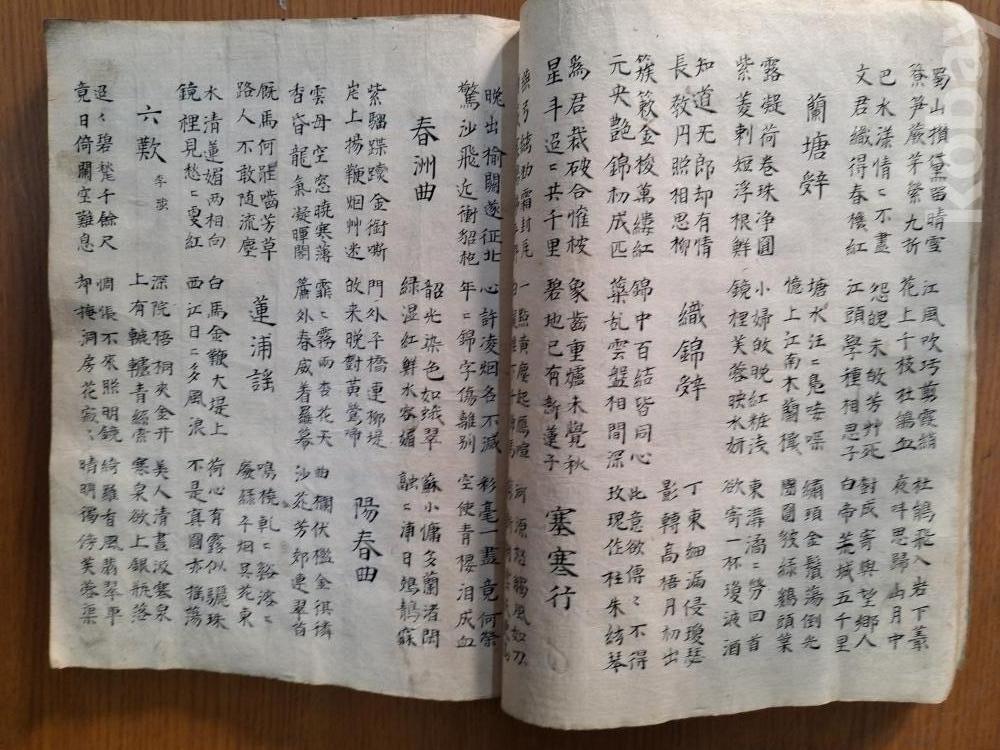 蜀山攢黛留晴雪
簝笋蕨芽縈九折
江風吹巧剪霞綃
花上千枝杜鵑血
杜鵑飛入岩下叢
夜叫思歸山月中
巴水漾情ニ不盡
文君織得春機紅
怨魄未歸芳艸死
江頭學種相思子
對成寄與望鄉人
白帝荒城五千里
蘭塘辝
塘水汪ニ鳧唼喋
憶上江南木蘭檝
繡頭金鬚蕩倒光
團團皴綠鷄頭葉
露凝荷卷珠净圓
紫菱刺短浮根鮮
小婦歸晚紅粧浅
鏡裡芙蓉映水妍
東溝潏ニ勞回首
欲寄一杯瓊液酒
知道无郎却有情
長教月照相思柳
織錦辝
丁東細漏侵瓊瑟
影轉高梧月初出
簇簌金梭萬縷紅
元央艷錦初成匹
錦中百結皆同心
蘂乱雲盤相間深
此意欲傳ニ不得
玫瑰作柱朱絃琴
為君裁破合惟被
星斗迢ニ共千里
象齒重爐未覺秋
碧池已有新蓮子
塞寒行
晚出榆關邃征北
驚沙飛近衝貂袍
心許凌烟名不滅
年ニ錦字傷離别
彩毫一盡竟何榮
空使青樓泪成血
春洲曲
韶光染色如蛾翠
綠湿紅鮮水容媚
蘇小慵多蘭渚閑
融ニ浦日鵁鶄寐
紫騮蹀躞金銜嘶
岸上揚鞭烟艸迷
門外平橋連柳堤
歸來晚對黃鶯啼
陽春曲
雲母空窓曉寒薄
香昏龍氣凝暉閣
霏ニ霧雨杏花天
簾外春威着羅幕
曲欄伏檻金猉獜
沙苑芳郊連翠茵
廐馬何能嚙芳草
路人不敢随流塵
蓮浦謠
鳴橈軋ニ谿溶ニ
廢綠平烟吳苑東
水清蓮媚兩相向
鏡裡見愁ニ更紅
白馬金鞭大堤上
西江日ニ多風浪
荷心有露似驪珠
不是真圓亦摇蕩
六歎
深院梧桐夾金井
上有轆轤青絲索
美人清晝汲寒泉
寒泉欲上銀瓶落
迢ニ碧甃千餘尺
竟日倚闌空難息
惆悵不來照明鏡
却掩洞房花寂ニ
綺羅香風翡翠車
晴明獨倚芙蓉渠
KOBAY